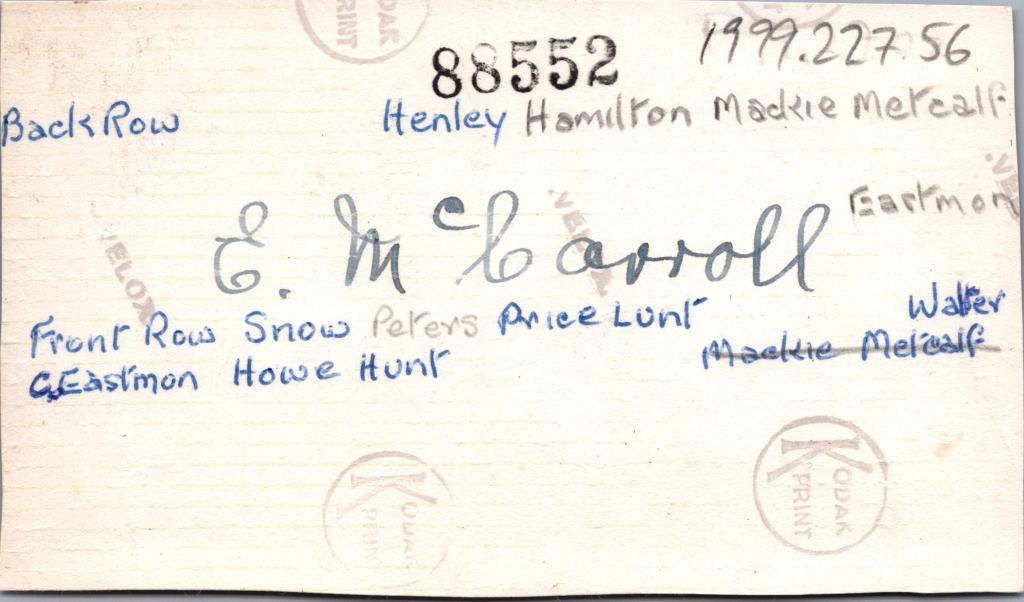 KODAK PRINT
88552
1999.227.56
Back Row Henley Hamilton Mackie Metcalf
VELOX
Eastmon
E. McCarroll
VELOX
Front Row Snow Peters Price Lunt Walter
C Eastmon Howe Hunt Mackie Metcalf
KODAK PRINT
KODAK PRINT